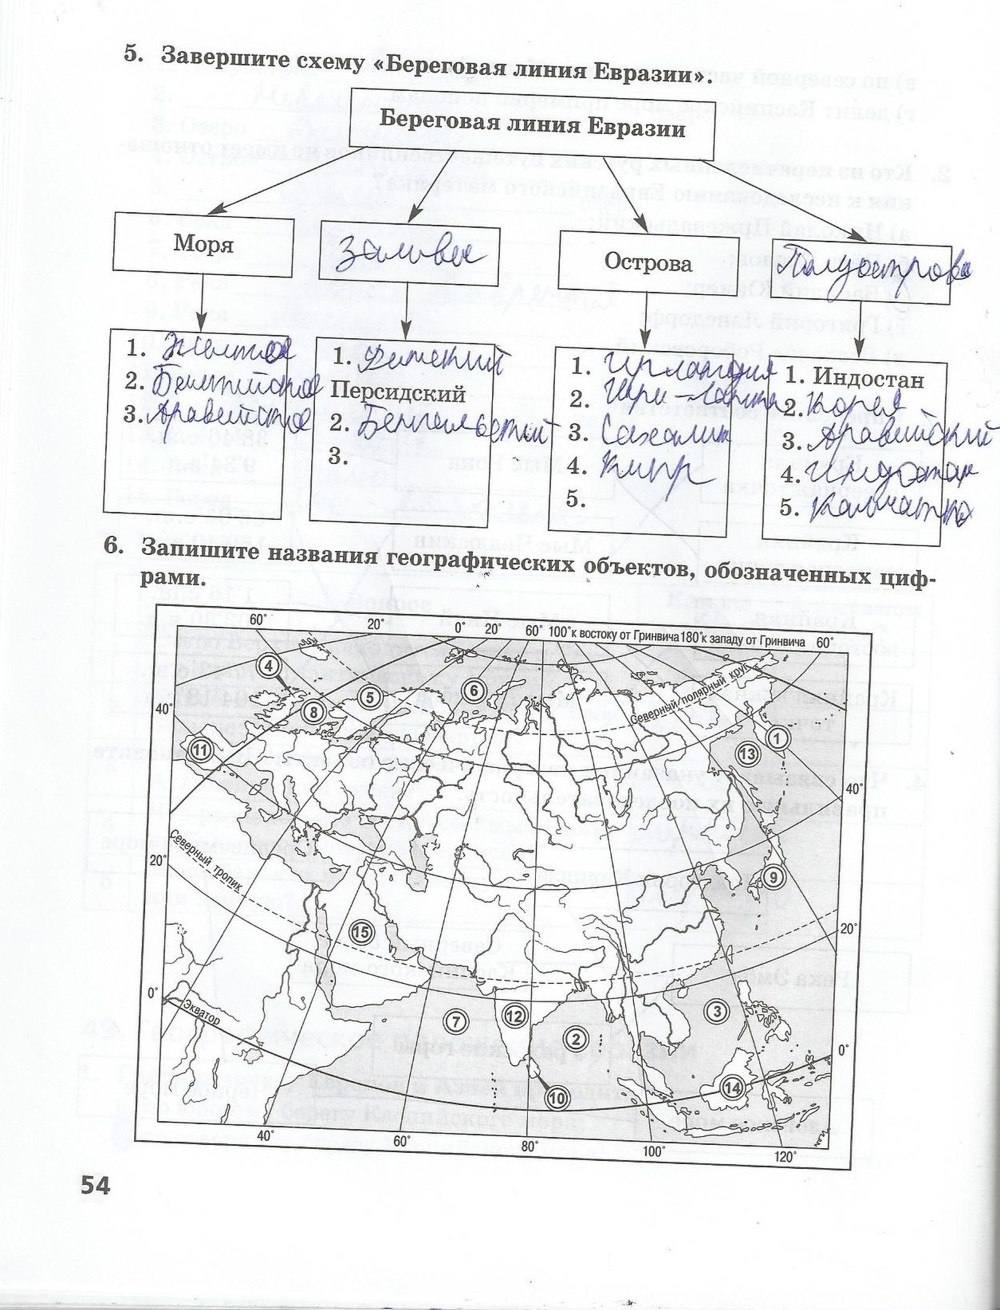 5. Завершите схему «Береговая линия Евразии».
Береговая линия Евразии
Моря
Заливы
Острова
Полуострова
1. Желтое
2. Балтийское
3. Аравийское
1. Финский
Персидский
2. Бенгальский
3.
1. Ирландия
2. Шри-Ланка
3. Сахалин
4. Кипр
5.
1. Индостан
2. Корея
3. Аравийский
4. Индостан
5. Камчатка
6. Запишите названия географических объектов, обозначенных циф-
рами.
60° 20° 0° 20° 60° 100° к востоку от Гринвича 180° к западу от Гринвича 60°
Северный полярный круг
4
5
6
8
40°
11
1
13
40°
Северный тропик
20°
9
15
20°
0°
Экватор
7
12
2
3
0°
10
14
40° 60° 80° 100° 120°
54